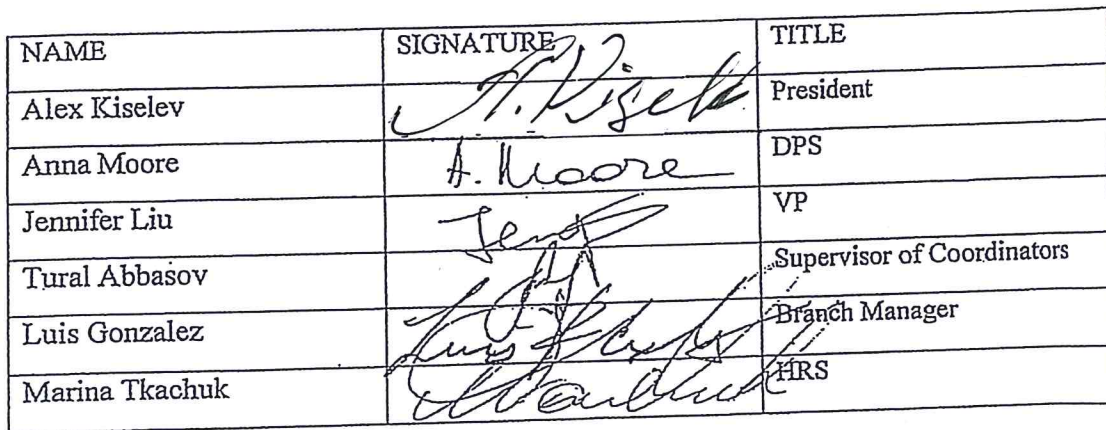 NAME SIGNATURE TITLE
Alex Kiselev A. Kisele President
Anna Moore A. Moore DPS
Jennifer Liu Jen VP
Tural Abbasov Supervisor of Coordinators
Luis Gonzalez Luis Branch Manager
Marina Tkachuk HRS